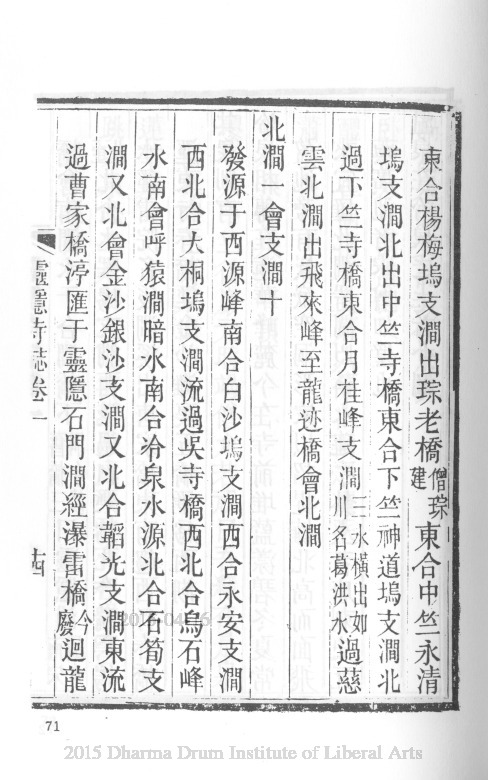 東合楊梅塢支澗出琮老橋僧琮建東合中竺永清
塢支澗北出中竺寺橋東合下竺神道塢支澗北
過下竺寺橋東合月桂峰支澗三水橫出如川名葛洪水過慈
雲北澗出飛來峰至龍迹橋會北澗
北澗一會支澗十
發源于西源峰南合白沙塢支澗西合永安支澗
西北合大桐塢支澗流過吳寺橋西北合烏石峰
水南會呼猿澗暗水南合冷泉水源北合石筍支
澗又北會金沙銀沙支澗又北合韜光支澗東流
過曹家橋渟匯于靈隱石門澗經瀑雷橋今廢迴龍
靈隱寺誌卷一
十四
71
2015 Dharma Drum Institute of Liberal Arts